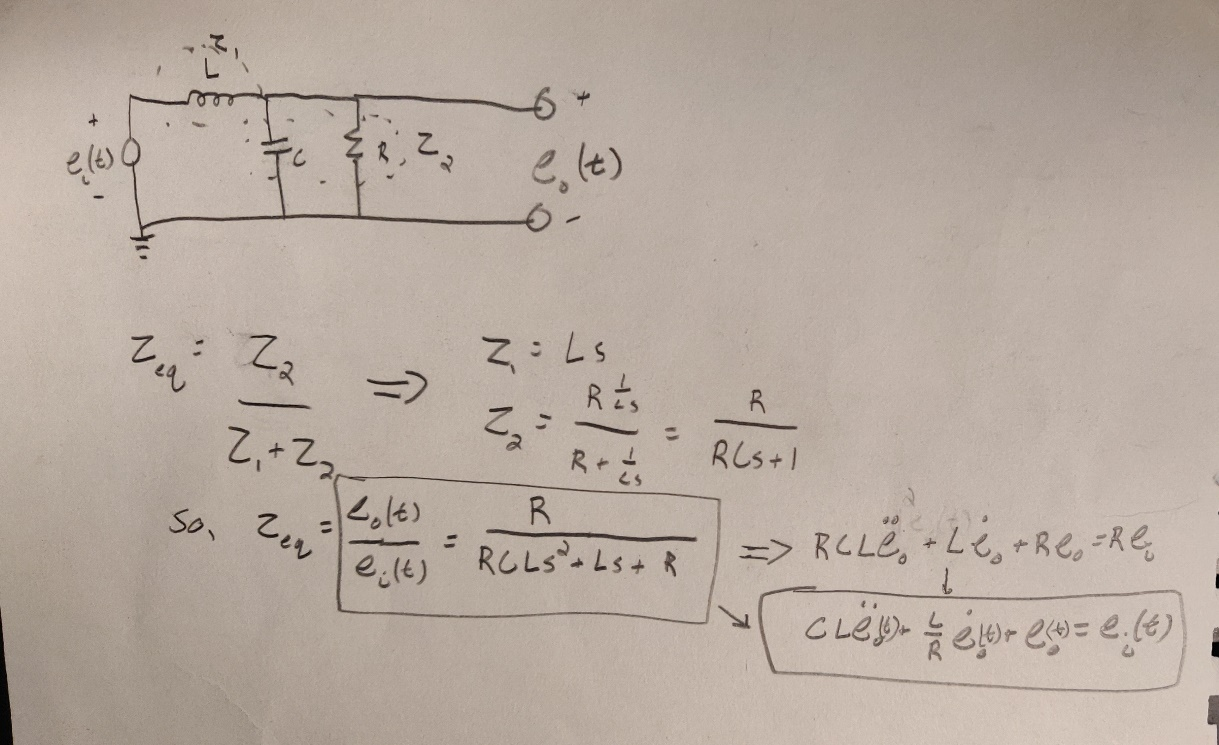 Z₁
L
+
e_i(t)
-
C
R
Z₂
+
e_o(t)
-
Z_eq = Z₂ / (Z₁ + Z₂) ⟹ Z₁ = Ls
Z₂ = (R 1/Cs) / (R + 1/Cs) = R / (RCs + 1)
So, Z_eq = e_o(t) / e_i(t) = R / (RCLs² + Ls + R) ⟹ RCLë_o + Lė_o + Re_o = Re_i
CLë_o(t) + L/R ė_o(t) + e_o(t) = e_i(t)